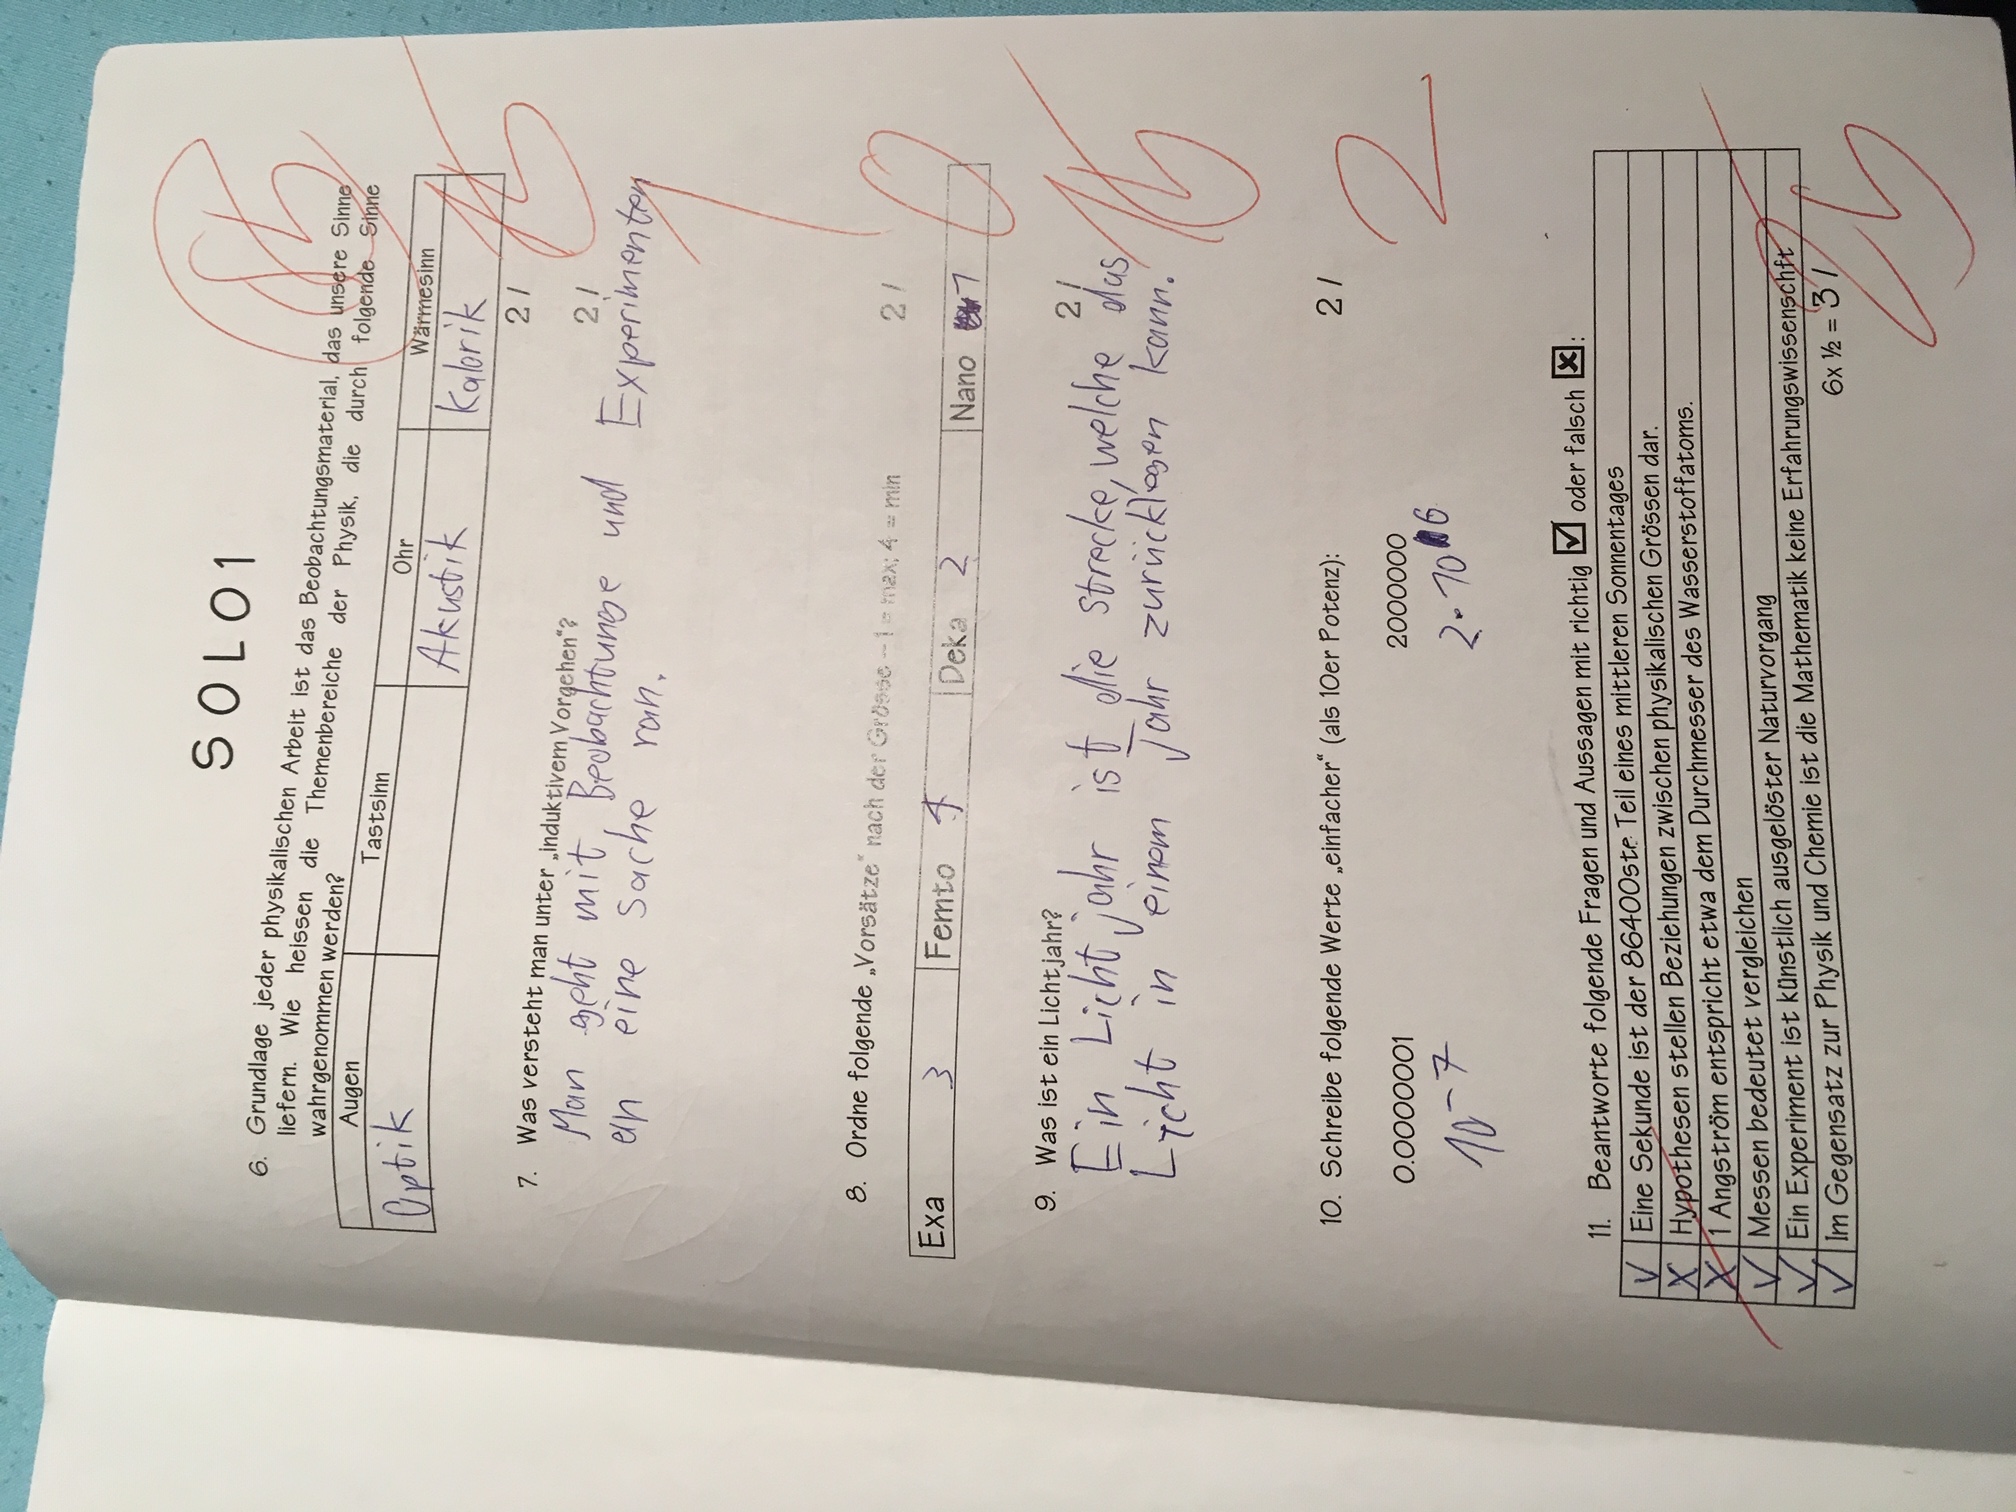 SOLO1
6. Grundlage jeder physikalischen Arbeit ist das Beobachtungsmaterial, das unsere Sinne
liefern. Wie heissen die Themenbereiche der Physik, die durch folgende Sinne
wahrgenommen werden?
Augen Tastsinn Ohr Wärmesinn
Optik Akustik Kalorik
2 / 1,5
7. Was versteht man unter „induktivem Vorgehen"? 2 /
Man geht mit Beobachtunge und Experimenten
an eine Sache ran.
1
8. Ordne folgende „Vorsätze" nach der Grösse – 1 = max; 4 = min 2 / 0
Exa 3 Femto 4 Deka 2 Nano 1
9. Was ist ein Lichtjahr? 2 / 1,5
Ein Lichtjahr ist die strecke, welche das
Licht in einem Jahr zurücklegen kann.
10. Schreibe folgende Werte „einfacher" (als 10er Potenz): 2 / 2
0.0000001 2000000
10⁻⁷ 2·10⁶
11. Beantworte folgende Fragen und Aussagen mit richtig ☑ oder falsch ☒:
✓ Eine Sekunde ist der 86400ste Teil eines mittleren Sonnentages
X Hypothesen stellen Beziehungen zwischen physikalischen Grössen dar.
X 1 Angström entspricht etwa dem Durchmesser des Wasserstoffatoms.
✓ Messen bedeutet vergleichen
✓ Ein Experiment ist künstlich ausgelöster Naturvorgang
✓ Im Gegensatz zur Physik und Chemie ist die Mathematik keine Erfahrungswissenschft
6x ½ = 3 / 2,5